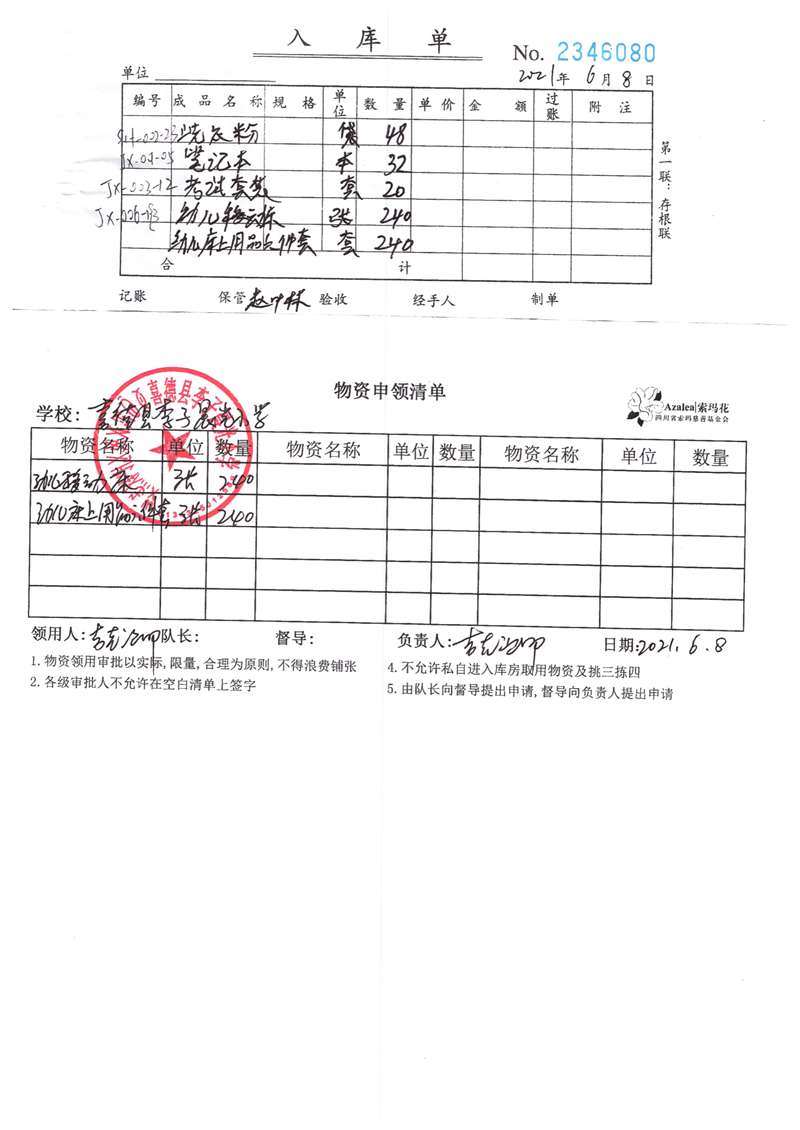 入 库 单
No. 2346080
单位
2021年 6月 8日
编号 成品名称 规格 单位 数量 单价 金额 过账 附注
洗衣粉 袋 48
笔记本 本 32
JX-003-12 考试套装 套 20
幼儿 床 张 240
幼儿床上用品 件套 套 240
合 计
第一联：存根联
记账 保管 验收 经手人 制单
物资申领清单
Azalea|索玛花
四川省索玛慈善基金会
学校：喜德县李子 小学
物资名称 单位 数量 物资名称 单位 数量 物资名称 单位 数量
幼儿 床 张 240
幼儿床上用品 件套 张 240
领用人： 队长： 督导： 负责人： 日期：2021.6.8
1.物资领用审批以实际,限量,合理为原则,不得浪费铺张
2.各级审批人不允许在空白清单上签字
4.不允许私自进入库房取用物资及挑三拣四
5.由队长向督导提出申请,督导向负责人提出申请